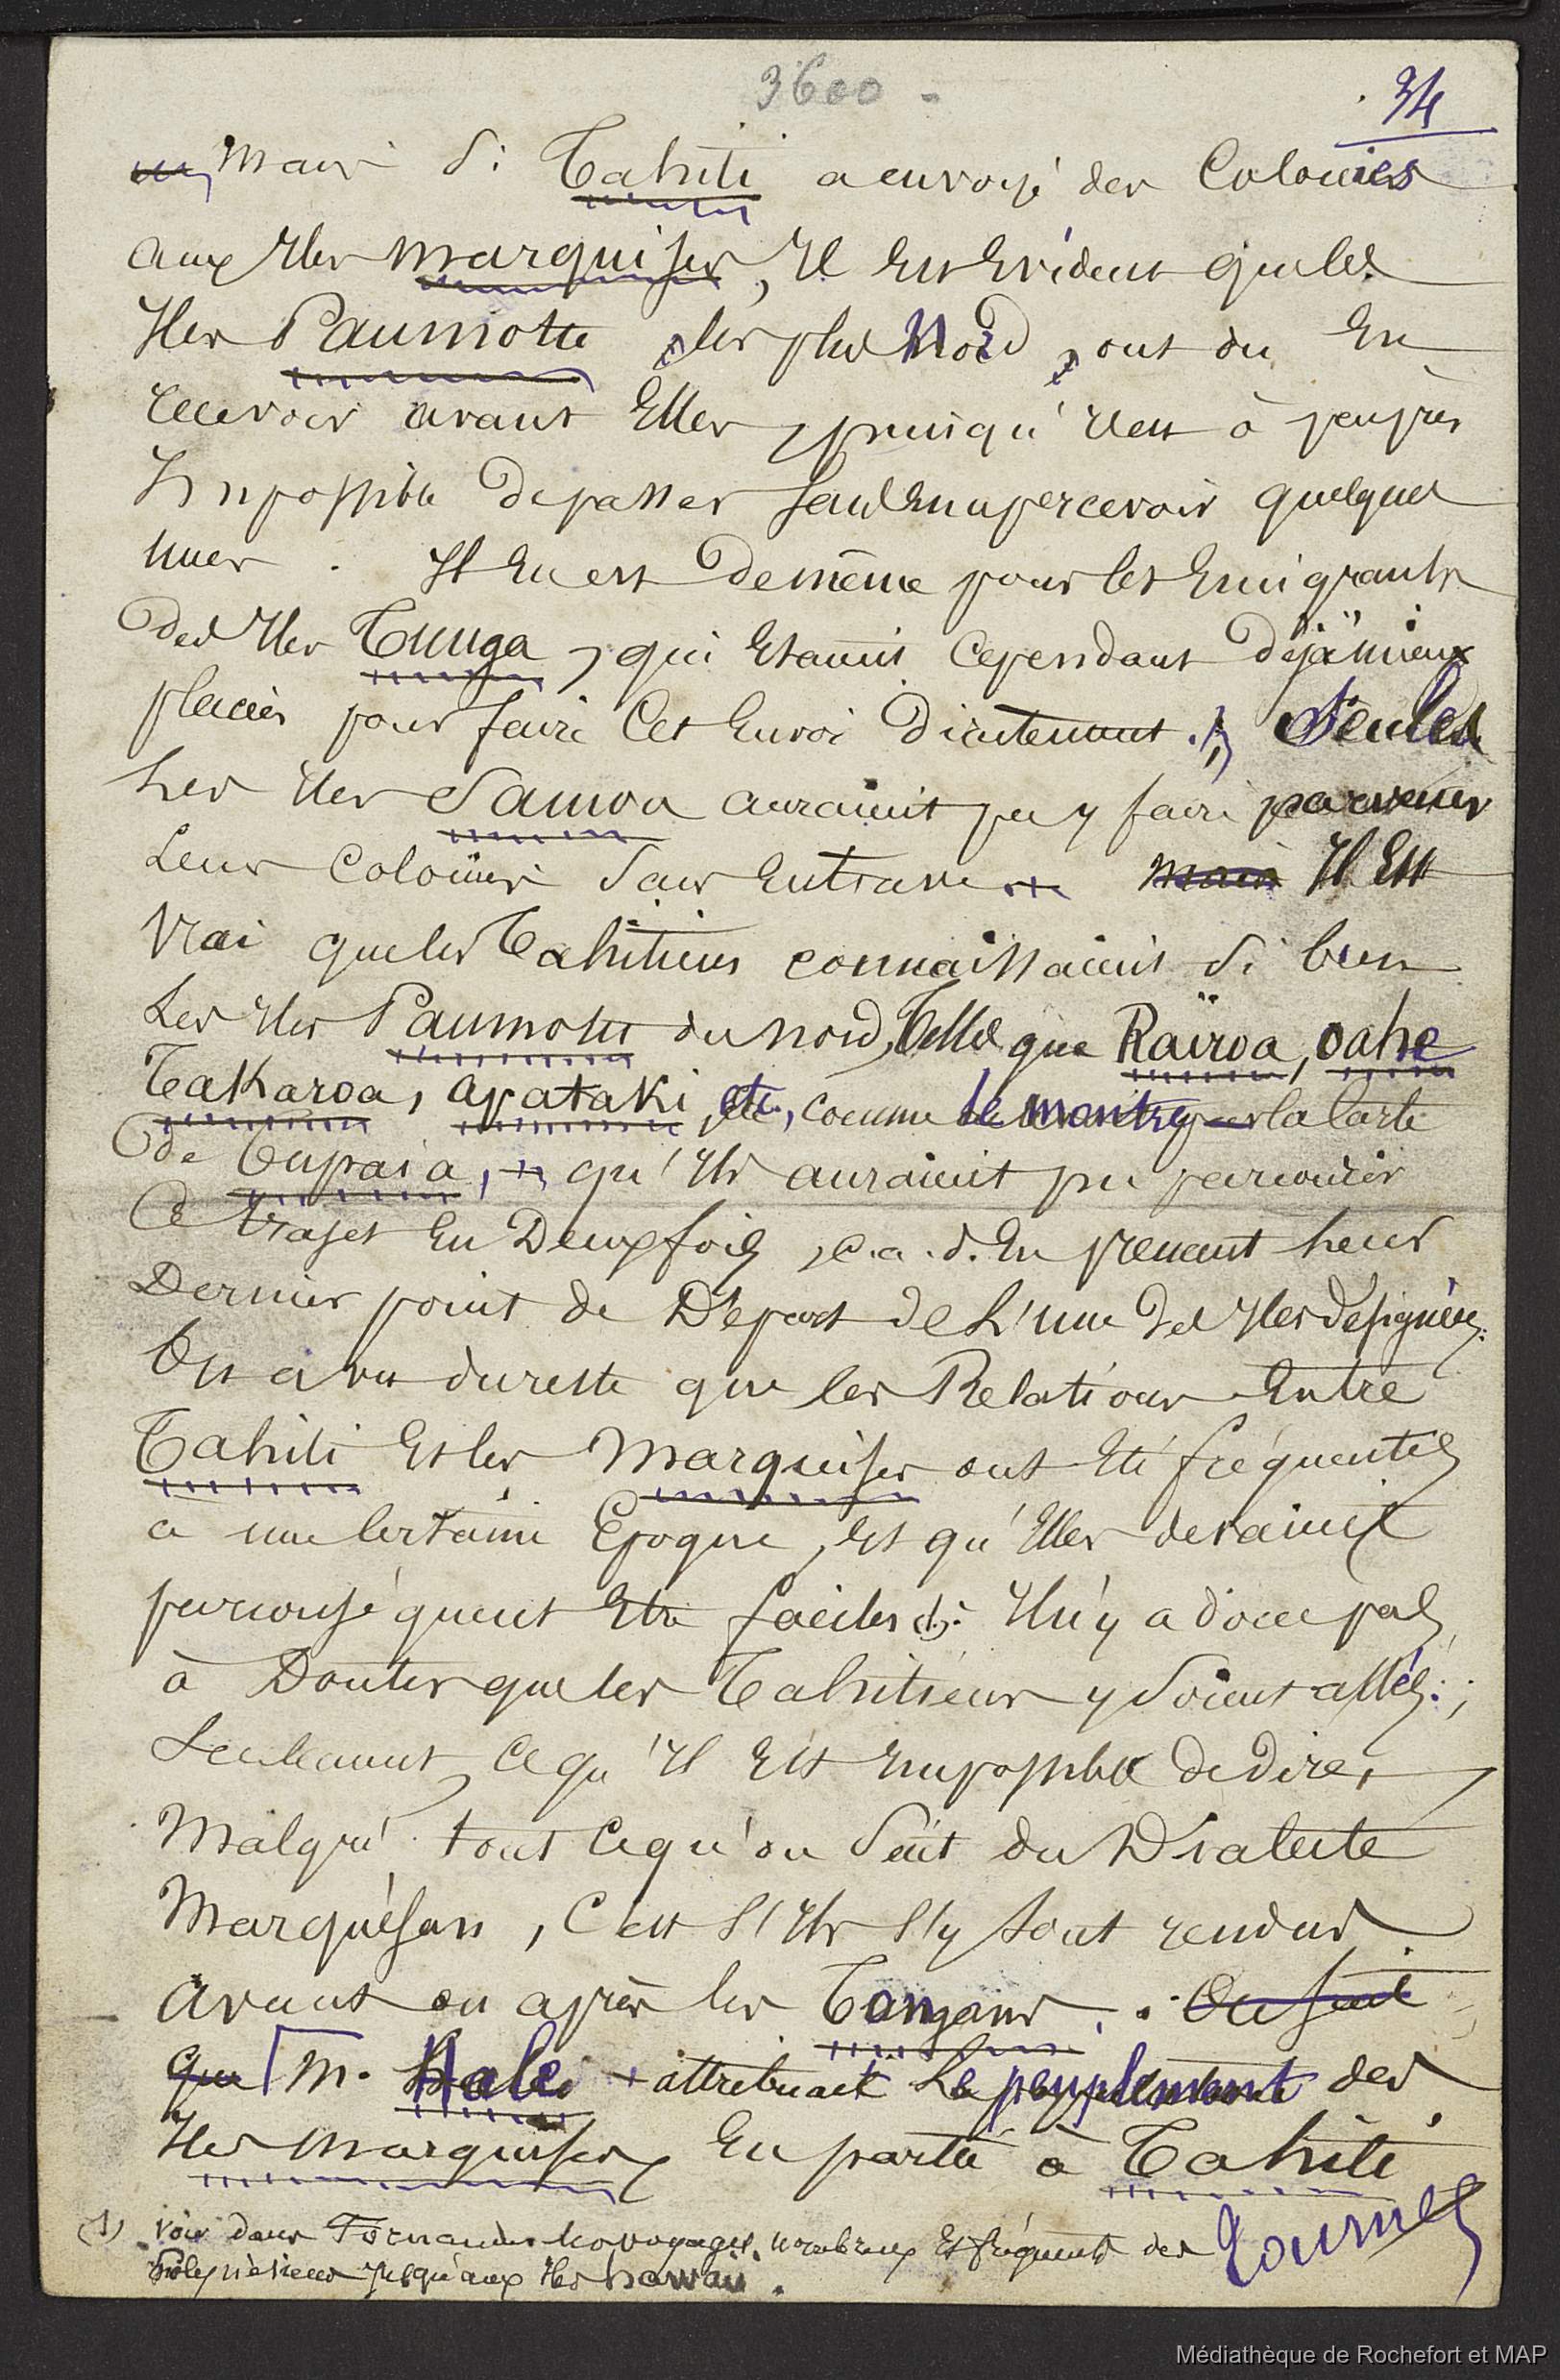 3600 -
34
Mais si Tahiti a envoyé des Colonies
aux Iles Marquises, Il est Evident que les
Iles Paumotu les plus Nord, ont du En
recevoir avant Elles, puisqu'il est à peu près
Impossible de passer sans en apercevoir quelques
unes. Il En est de même pour les Emigrants
des Iles Tunga, qui Etaient Cependant Déjà mieux
placées pour faire Cet Envoi Directement. Seules
Les Iles Samoa auraient pu y faire parvenir
Leurs Colonies Sans Entrave. Mais Il Est
Vrai que les Tahitiens connaissaient si bien
Les Iles Paumotu du Nord, telles que Raïroa, Oahe
Takaroa, Apataki, etc., comme le montre la Carte
de Tupaia, qu'Ils auraient pu parcourir
Ce trajet En Deux fois, c.a.d. En prenant leur
Dernier point de Départ de L'une des Iles désignées.
On a vu du reste que les Relations Entre
Tahiti Et les Marquises ont Eté fréquentes
a une Certaine Epoque, Et qu'Elles devaient
par conséquent Etre faciles (1). Il n'y a donc pas
à Douter que les Tahitiens y Soient allés;
Seulement, Ce qu'Il Est Impossible de dire,
Malgré tout Ce qu'on Sait du Dialecte
Marquésan, C'est S'Ils S'y Sont rendus
avant ou après les Tongans. On sait
que M. Hale attribuait Le peuplement des
Iles Marquises En partie à Tahiti
(1) Voir dans Fornander les voyages nombreux Et fréquents des
Polynésiens jusqu'aux Iles hawaii.
Tournez
Médiathèque de Rochefort et MAP